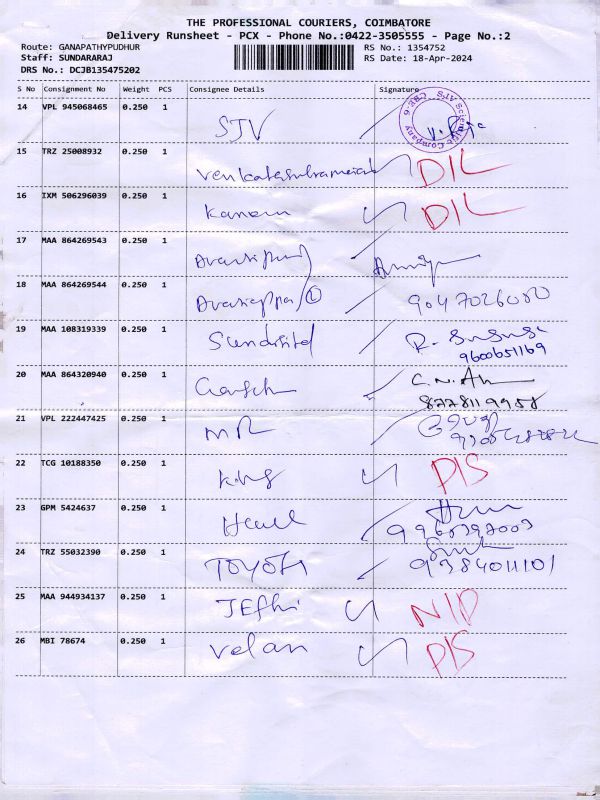 THE PROFESSIONAL COURIERS, COIMBATORE
Delivery Runsheet - PCX - Phone No.:0422-3505555 - Page No.:2
Route: GANAPATHYPUDHUR RS No.: 1354752
Staff: SUNDARARAJ RS Date: 18-Apr-2024
DRS No.: DCJB135475202
S No Consignment No Weight PCS Consignee Details Signature
14 VPL 945068465 0.250 1 STV
15 TRZ 25008932 0.250 1 D/L
16 IXM 506296039 0.250 1 D/L
17 MAA 864269543 0.250 1
18 MAA 864269544 0.250 1 9047026080
19 MAA 108319339 0.250 1 R.
9600651169
20 MAA 864320940 0.250 1 C.N.
8778119958
21 VPL 222447425 0.250 1 MR
22 TCG 10188350 0.250 1 P/S
23 GPM 5424637 0.250 1
24 TRZ 55032390 0.250 1 TOYOTA 9384011101
25 MAA 944934137 0.250 1 N/D
26 MBI 78674 0.250 1 Velan P/S